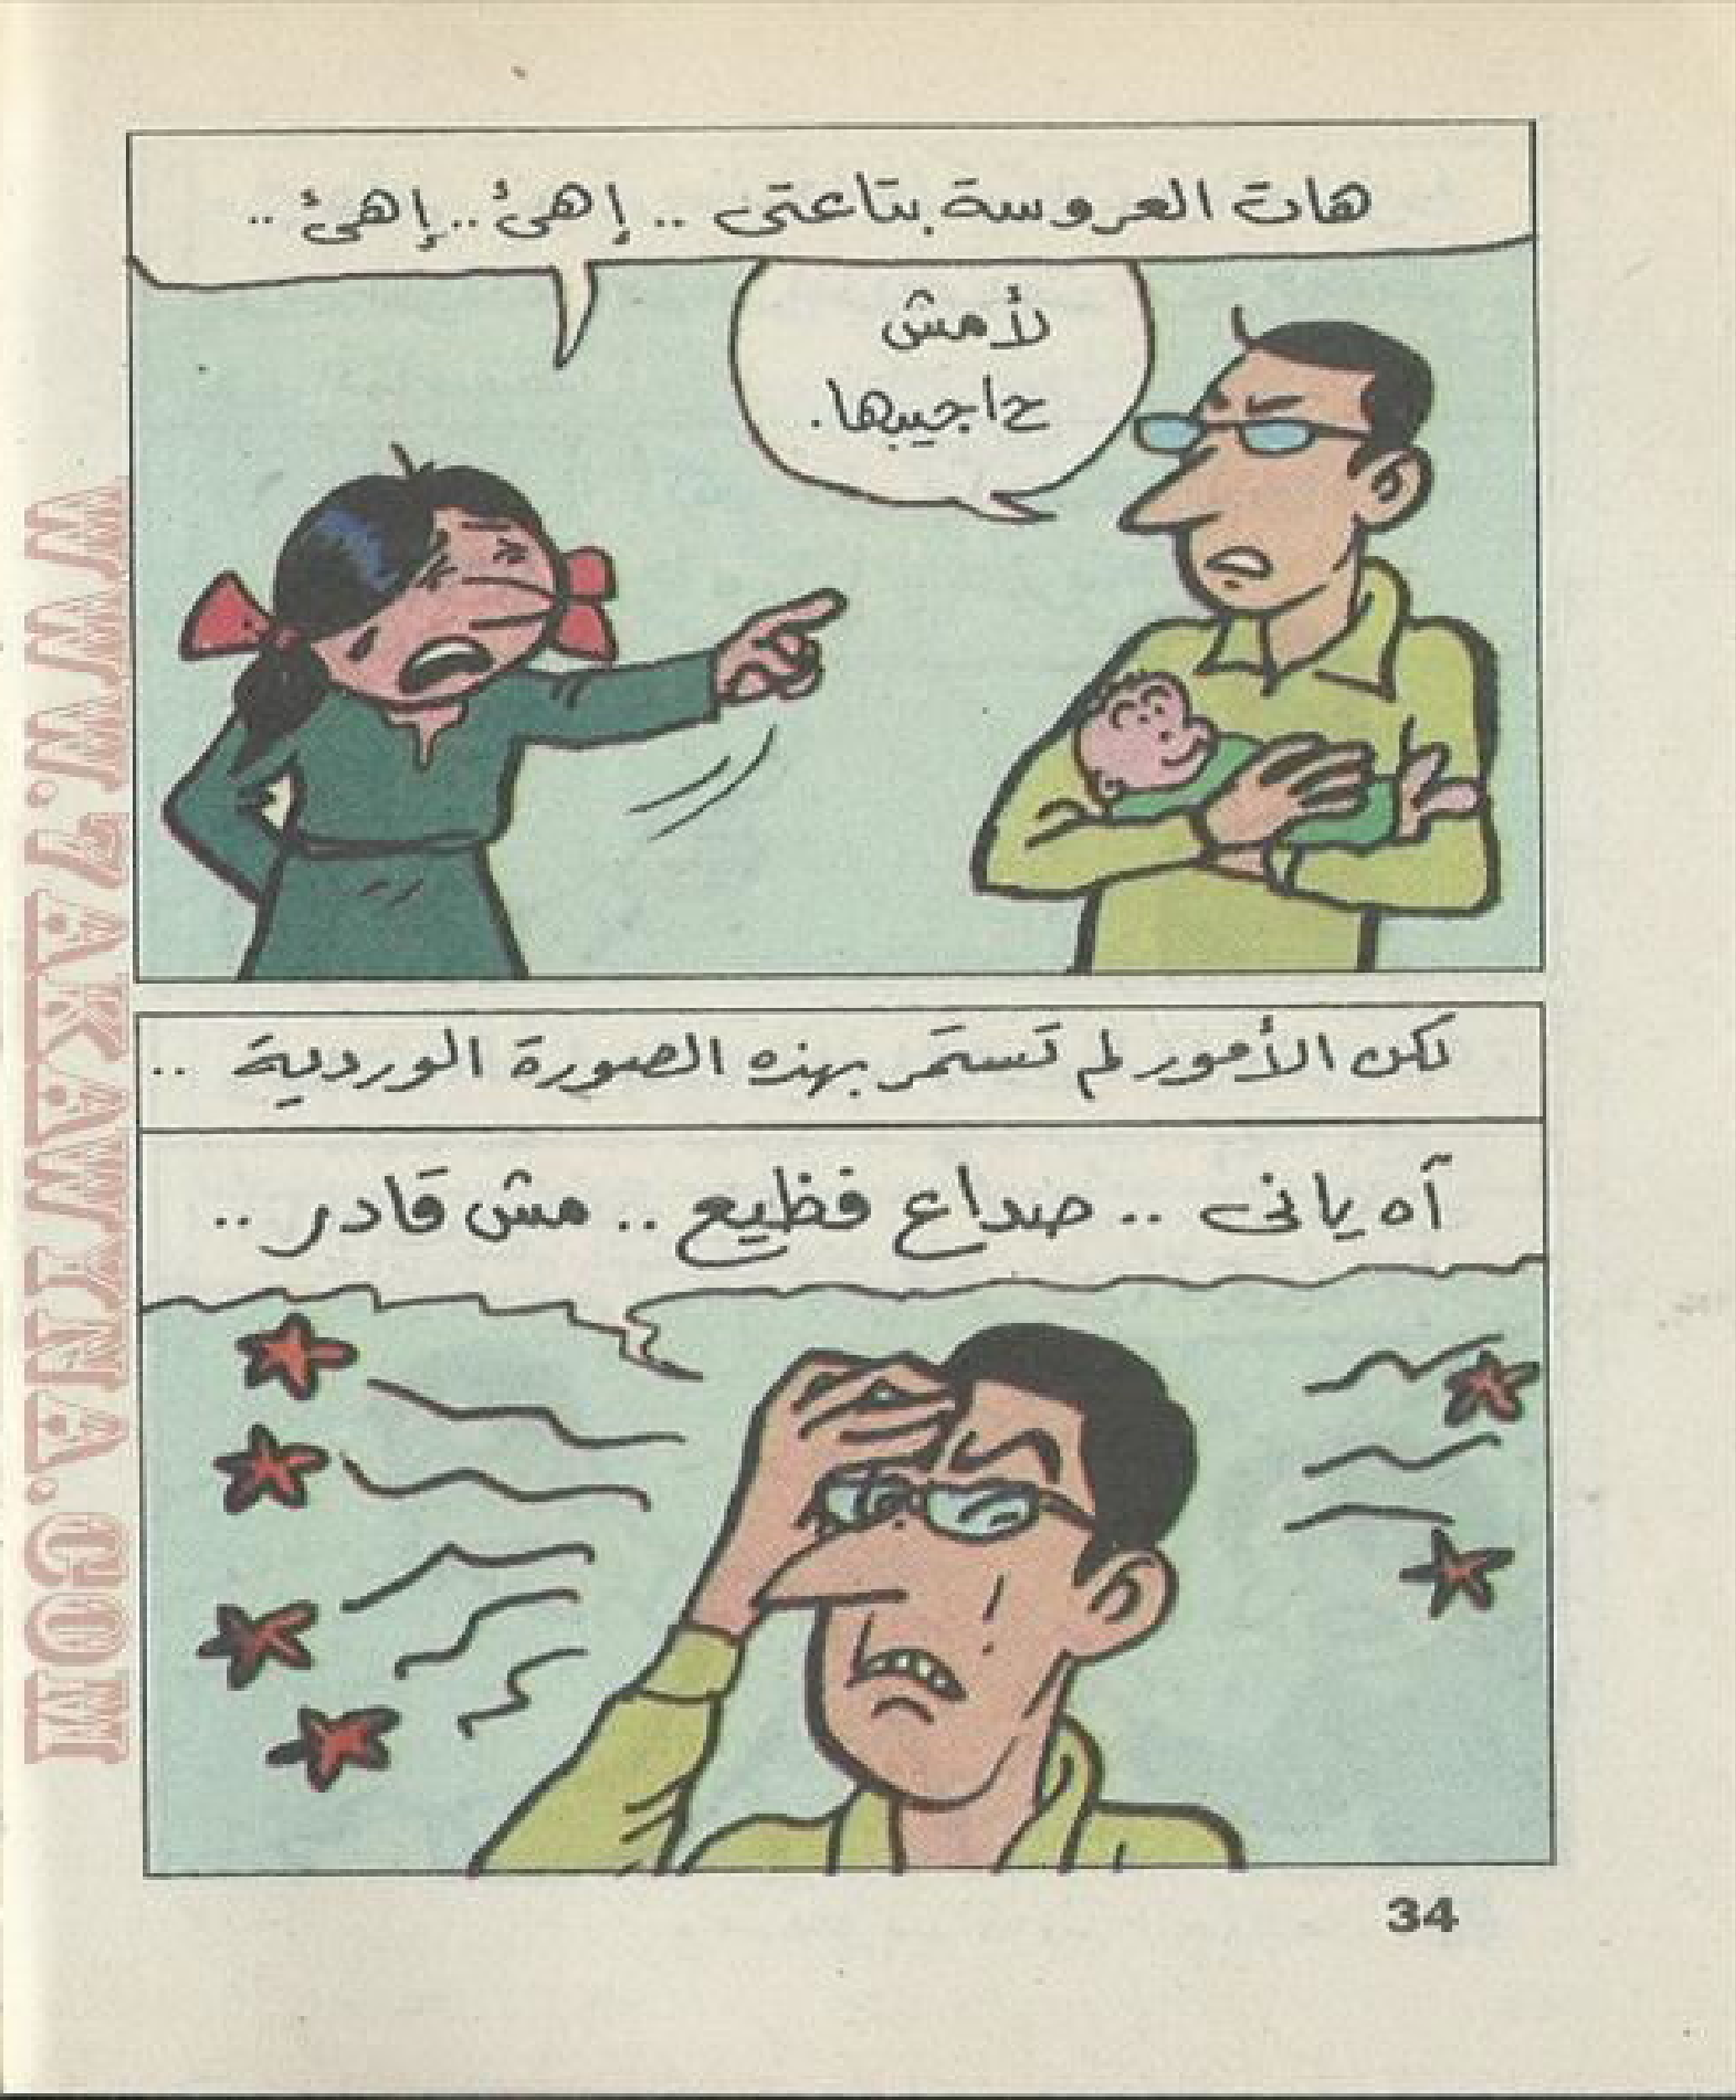 هات العروسة بتاعتى .. إهئ .. إهئ ..
لأ مش
حاجيبها.
لكن الأمور لم تستمر بهذه الصورة الوردية ..
آه يانى .. صداع فظيع .. مش قادر ..
34
WWW.7AKAWYNA.COM